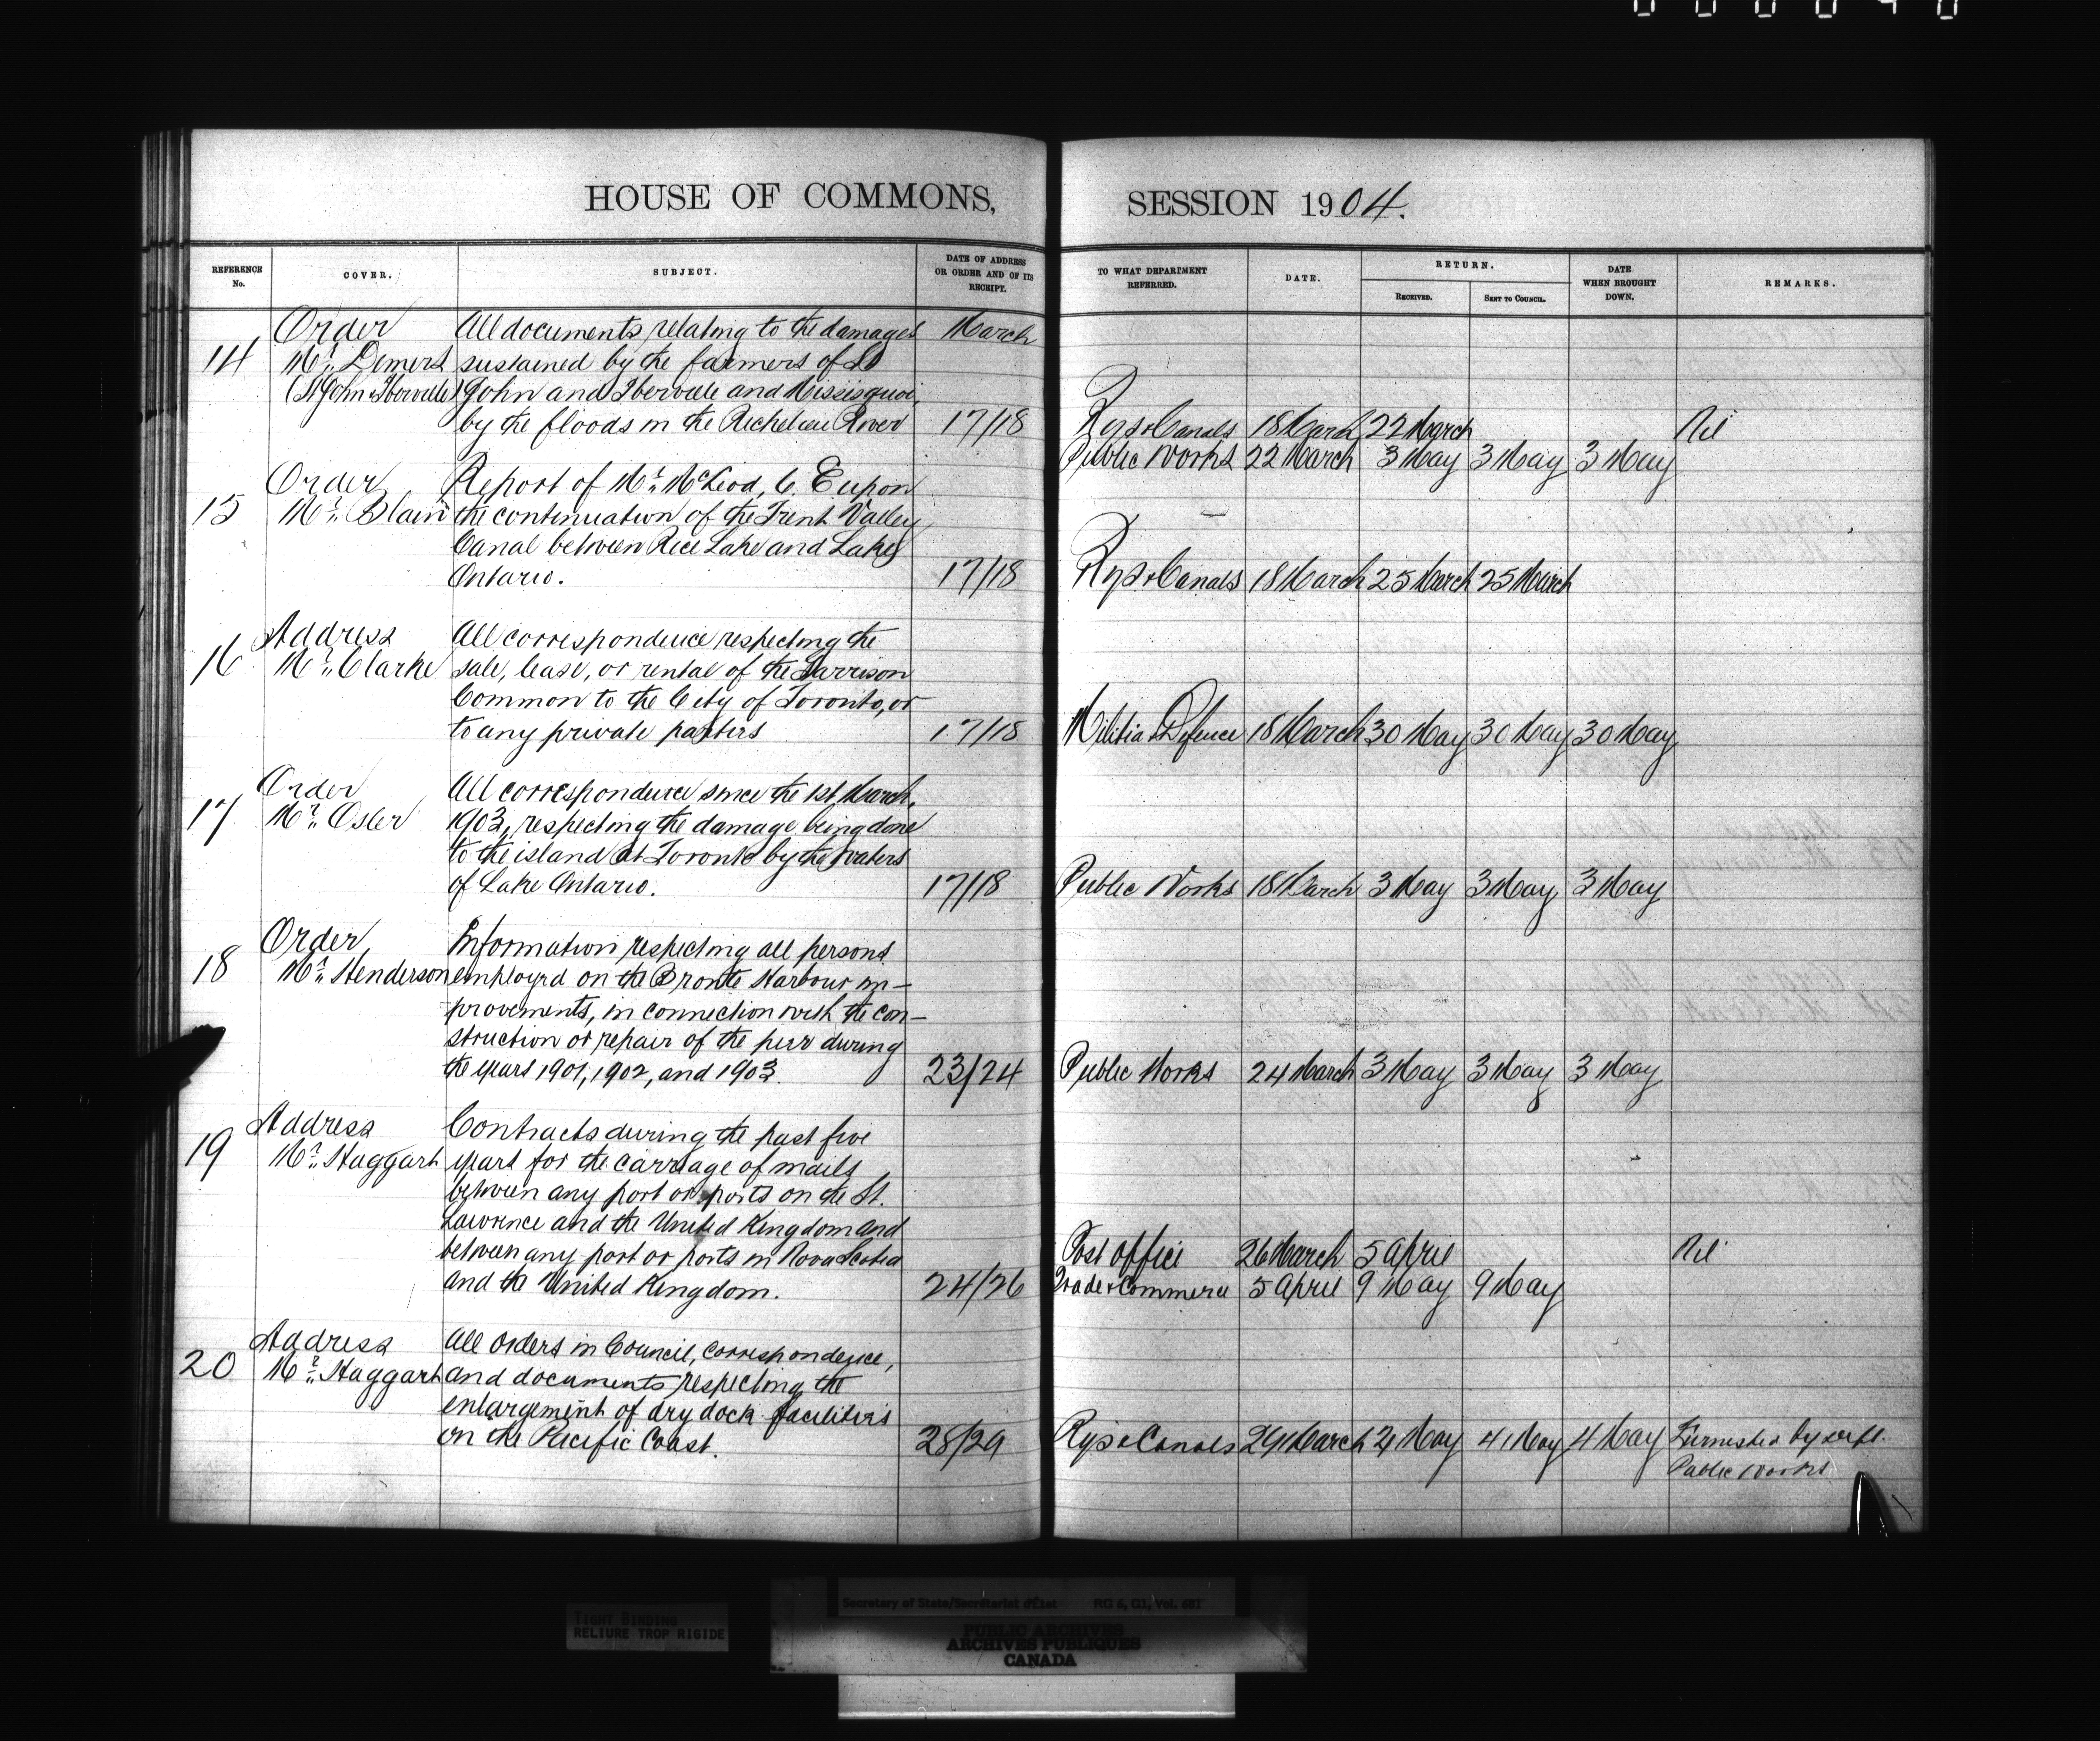 HOUSE OF COMMONS,
REFERENCE No.
COVER.
SUBJECT.
DATE OF ADDRESS OR ORDER AND OF ITS RECEIPT.
Order All documents relating to the damages March
14 Mr. Demers sustained by the farmers of St
(St John & Iberville) John and Iberville and Missisquoi,
by the floods in the Richelieu River 17/18
Order Report of Mr. McLeod, C. E upon
15 Mr. Blain the continuation of the Trent Valley
Canal between Rice Lake and Lake
Ontario. 17/18
Address All correspondence respecting the
16 Mr. Clarke sale, lease, or rental of the Garrison
Common to the City of Toronto, or
to any private parties 17/18
Order All correspondence since the 1st March,
17 Mr. Osler 1903, respecting the damage being done
to the island at Toronto by the waters
of Lake Ontario. 17/18
Order Information respecting all persons
18 Mr. Henderson employed on the Bronte Harbour im-
provements, in connection with the con-
struction or repair of the pier during
the years 1901, 1902, and 1903. 23/24
Address Contracts during the past five
19 Mr. Haggart years for the carriage of mails
between any port or ports on the St.
Lawrence and the United Kingdom and
between any port or ports in Nova Scotia
and the United Kingdom. 24/26
Address All Orders in Council, correspondence,
20 Mr. Haggart and documents respecting the
enlargement of dry dock facilities
on the Pacific Coast. 28/29
SESSION 1904.
TO WHAT DEPARTMENT REFERRED.
DATE.
RETURN.
RECEIVED.
SENT TO COUNCIL.
DATE WHEN BROUGHT DOWN.
REMARKS.
Rys & Canals 18 March 22 March Nil
Public Works 22 March 3 May 3 May 3 May
Rys & Canals 18 March 25 March 25 March
Militia & Defence 18 March 30 May 30 May 30 May
Public Works 18 March 3 May 3 May 3 May
Public Works 24 March 3 May 3 May 3 May
Post Office 26 March 5 April Nil
Trade & Commerce 5 April 9 May 9 May
Rys & Canals 29 March 4 May 4 May 4 May Furnished by dept.
Public Works
TIGHT BINDING
RELIURE TROP RIGIDE
Secretary of State/Secrétariat d'État RG 6, G1, Vol.
PUBLIC ARCHIVES
ARCHIVES PUBLIQUES
CANADA